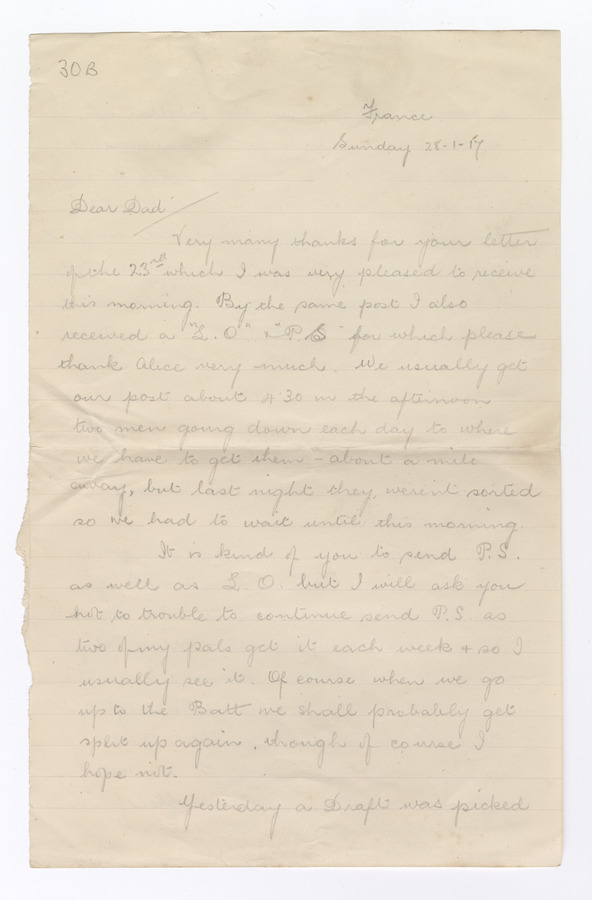 30B
France
Sunday 28-1-17
Dear Dad
Very many thanks for your letter
of the 23rd which I was very pleased to receive
this morning. By the same post I also
received a "L. O" & "P. S" for which please
thank Alice very much. We usually get
our post about 4 30 in the afternoon
two men going down each day to where
we have to get them - about a mile
away, but last night they werent sorted
so we had to wait until this morning.
It is kind of you to send P. S.
as well as L. O. but I will ask you
not to trouble to continue send P. S. as
two of my pals get it each week & so I
usually see it. Of course when we go
up to the Batt we shall probably get
split up again, though of course I
hope not.
Yesterday a Draft was picked